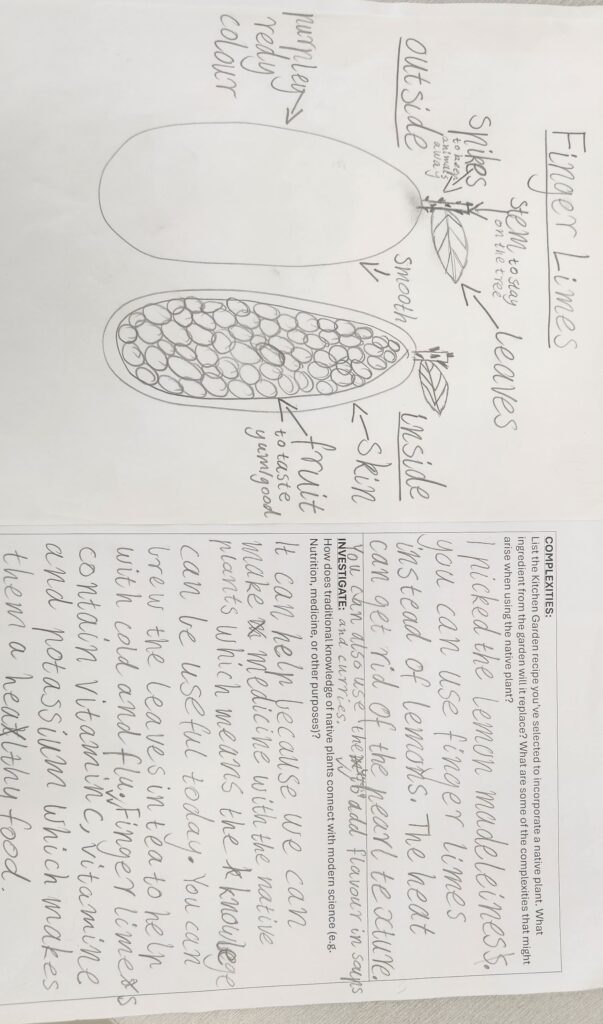 Finger Limes
stem to stay
on the tree
leaves
spikes
to keep
animals
away
outside
inside
purpley
redy
colour
smooth
skin
fruit
to taste
yum/good
COMPLEXITIES:
List the Kitchen Garden recipe you've selected to incorporate a native plant. What
ingredient from the garden will it replace? What are some of the complexities that might
arise when using the native plant?
I picked the lemon madeleines.
you can use finger limes
instead of lemons. The heat
can get rid of the pearl texture.
You can also use them to add flavour in soups
and curries.
INVESTIGATE:
How does traditional knowledge of native plants connect with modern science (e.g.
Nutrition, medicine, or other purposes)?
It can help because we can
make medicine with the native
plants which means the knowlege
can be useful today. You can
brew the leaves in tea to help
with cold and flu. Finger limes
contain vitamin c, vitamin e
and potassium which makes
them a healthy food.